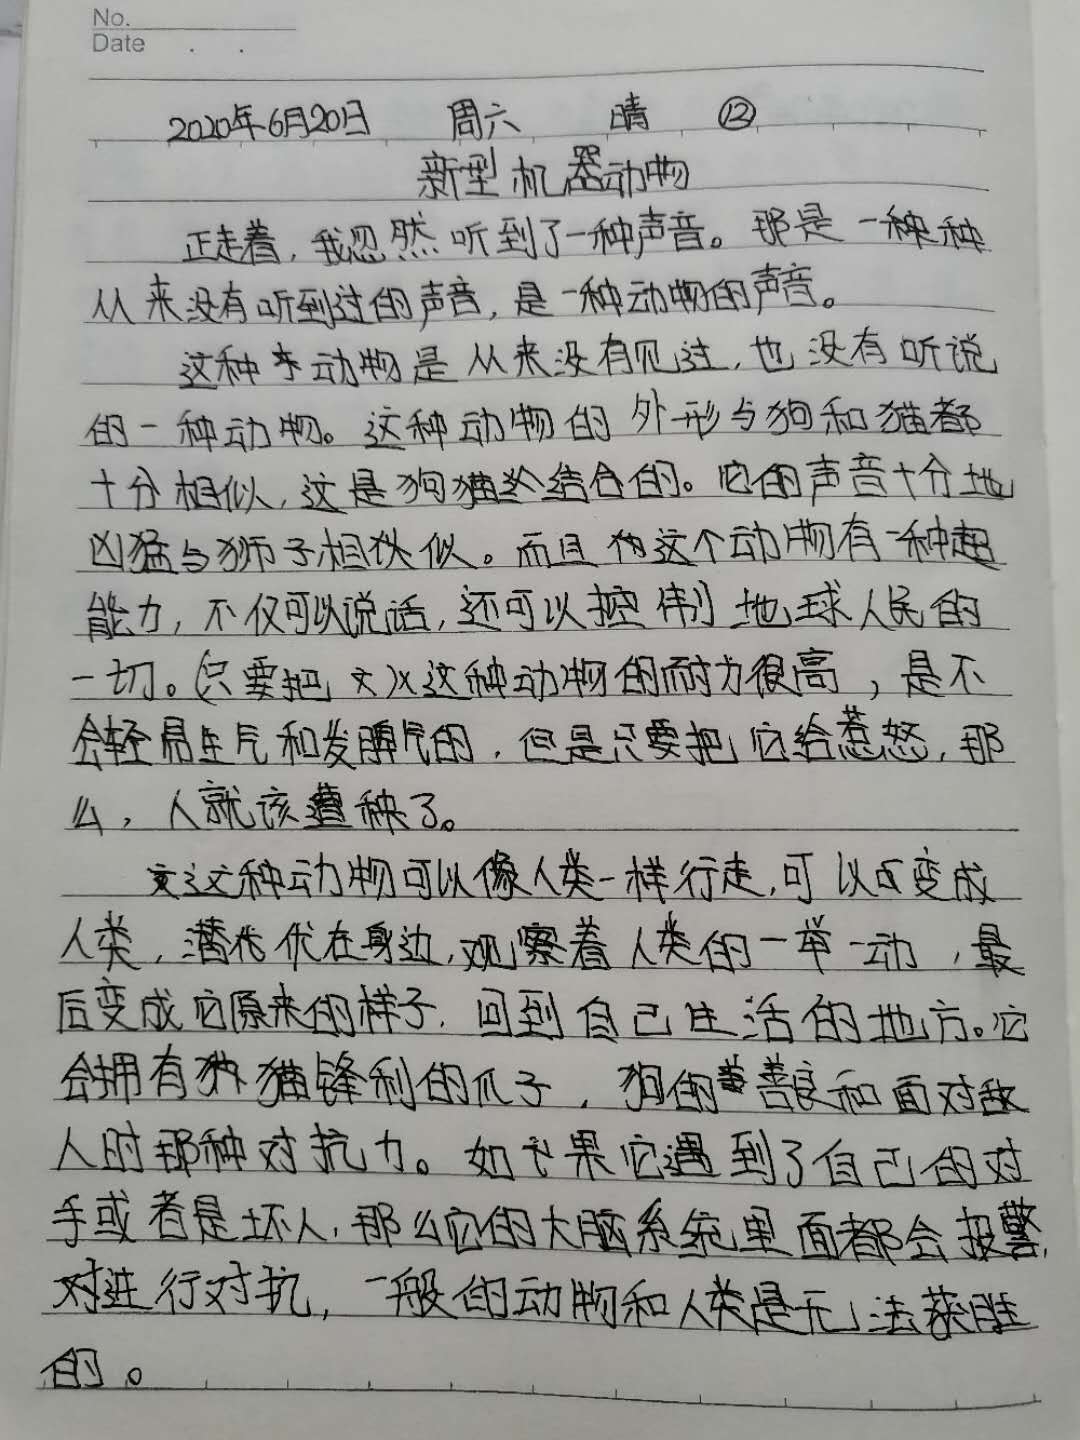 No.
Date . .
2020年6月20日 周六 晴 ⑫
新型机器动物
正走着,我忽然听到了一种声音。那是一种
从来没有听到过的声音,是一种动物的声音。
这种动物是从来没有见过,也没有听说
的一种动物。这种动物的外形与狗和猫都
十分相似,这是狗猫结合的。它的声音十分地
凶猛与狮子相似。而且这个动物有一种超
能力,不仅可以说话,还可以控制地球人民的
一切。(只要把)这种动物的耐力很高,是不
会轻易生气和发脾气的,但是只要把它给惹怒,那
么,人就该遭秧了。
这种动物可以像人类一样行走,可以变成
人类,潜伏在身边,观察着人类的一举一动,最
后变成它原来的样子,回到自己生活的地方。它
会拥有猫锋利的爪子,狗的善良和面对敌
人时那种对抗力。如果它遇到了自己的对
手或者是坏人,那么它的大脑系统里面都会报警,
对进行对抗,一般的动物和人类是无法获胜
的。